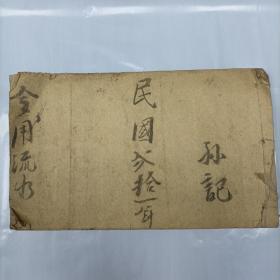 孙記
民國弍拾一年
用流水